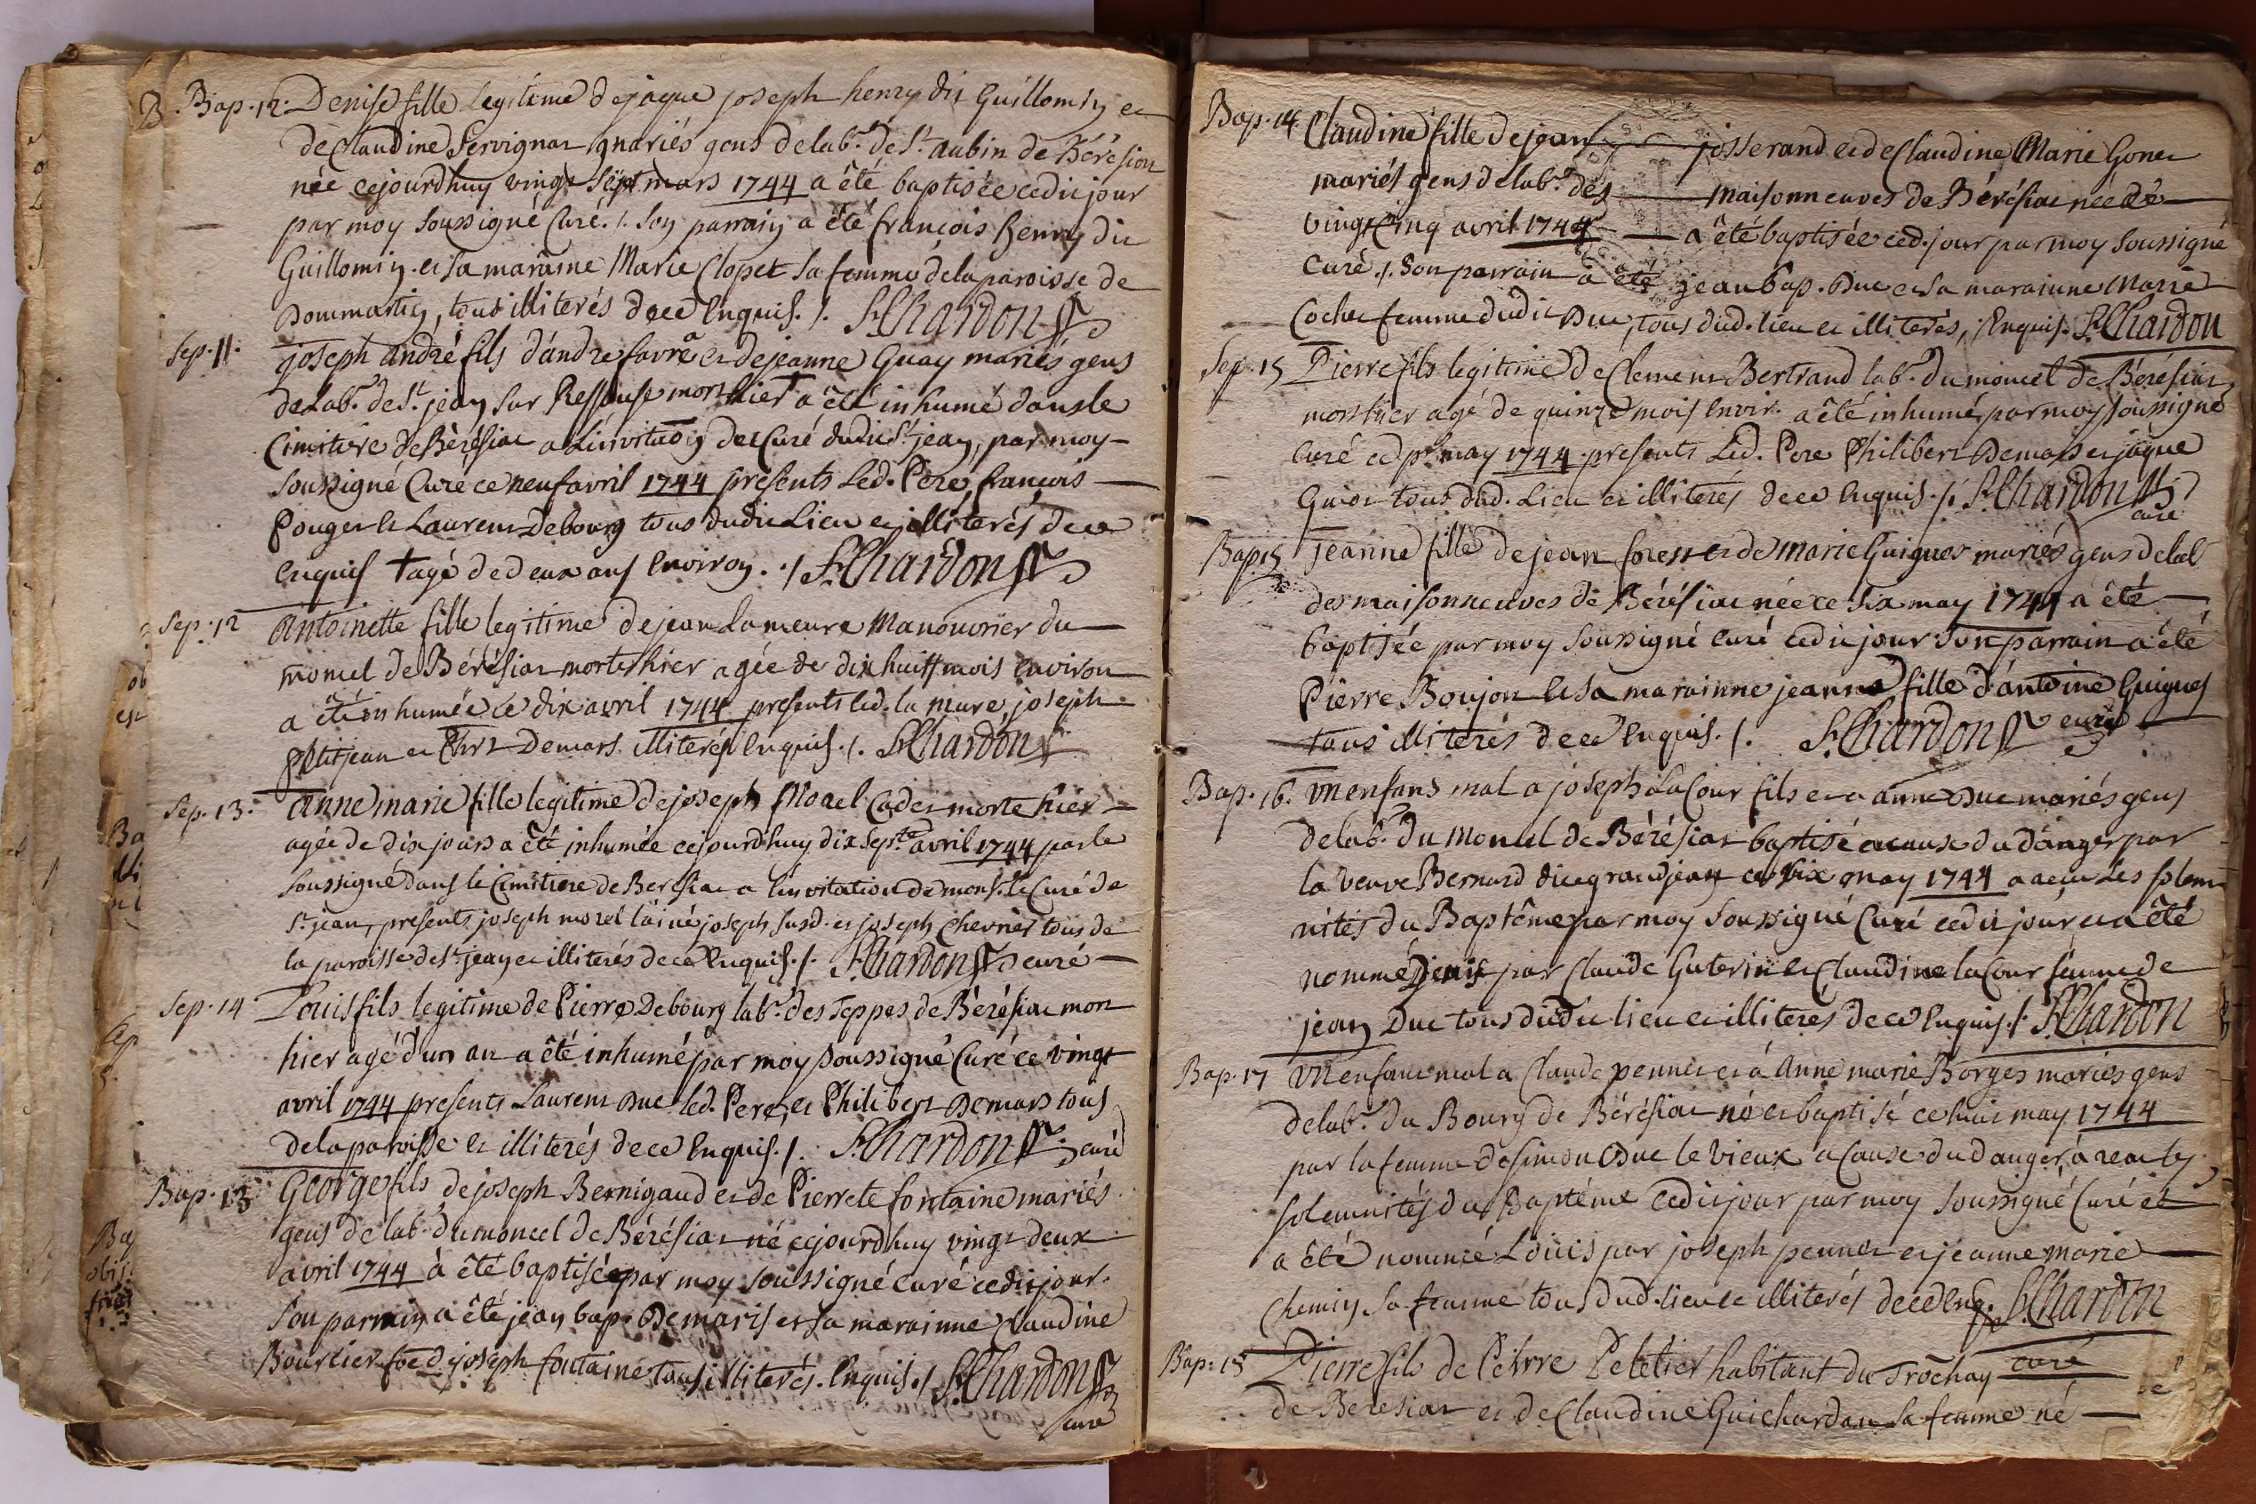 Bap. 12. Denise fille legitime de jaque joseph henry dit Guillomin et
de Claudine Servignat mariés gens de lab.r de S.t aubin de Bérésiat
née cejourdhuy vingt sept mars 1744 a été baptisée cedit jour
par moy soussigné Curé ./. Son parrain a été françois henry dit
Guillomin. et sa maraine Marie Clopet sa femme de la paroisse de
Dommartin, tous illiterés de ce Enquis. /. S.Chardon
Sep. 11. joseph andré fils d'andre favre et de jeanne Guay mariés gens
de Lab.r de S.t jean sur Ressouse mort hier † a été inhumé dans le
Cimitière de Bérésiat a L'invitation de Curé dudit S.t jean, par moy
soussigné Curé ce neuf avril 1744 presents Led. Pere, françois
Pouget et Laurent Debourg tous dudit Lieu et illiterés de ce
enquis † agé de deux ans Environ. ./. S.Chardon
Sep. 12 Antoinette fille legitime de jean Lameure Manouvrier du
moncel de Bérésiat morte hier agée de dix huitt mois Environ
a été inhumée ce dix avril 1744 presents led. la mure, joseph
petitjean et Demars. illiterés Enquis. /. S.Chardon
Sep. 13. Anne marie fille legitime de joseph Morel Cadet morte hier
agée de dix jours a été inhumée cejourdhuy dix sept avril 1744 par le
soussigné dans le Cimitiere de Beresiat a l'invitation de mons.r le Curé de
S.t jean, presents joseph morel l'ainé joseph susd. et joseph Chevrier tous de
la paroisse de S.t jean et illiterés de ce Enquis. /. S.Chardon curé
Sep. 14. Louis fils legitime de Pierre Debourg lab.r des Teppes de Bérésiat mort
hier agé d'un an a été inhumé par moy soussigné Curé ce vingt
avril 1744 presents Laurent Duc led. Pere, et Philibert Demars tous
de la paroisse et illiterés de ce Enquis. /. S.Chardon curé
Bap. 13 George fils de joseph Bernigaud et de Pierrete fontaine mariés
gens de lab. du moncel de Bérésiat né cejourdhuy vingt deux
avril 1744 à été baptisé par moy soussigné curé cedit jour.
Son parrain a été jean bap. Demaris et sa marainne Claudine
Bourcier joseph fontaine tous illiterés. Enquis. / S.Chardon
curé
Bap. 14. Claudine fille de jean josserand et de Claudine Marie Gonet
mariés gens de lab.r des maisonneuves de Bérésiat née
vingt Cinq avril 1744 a été baptisée ced. jour par moy soussigné
Curé ./. Son parrain a été jean bap. Duc et sa marainne Marie
Cochet femme dudit Duc, tous dud. lieu et illiterés, Enquis. S.Chardon
Sep. 15 Pierre fils legitime de Clement Bertrand lab.r du moncel de Bérésiat
mort hier agé de quinze mois envir. a été inhumé par moy soussigné
Curé ce p.r may 1744 presents Led. Pere Philibert Demars et jaque
Guiot tous dud. Lieu et illiterés de ce Enquis. /. S.Chardon
curé
Bap. 15 Jeanne fille de jean forest et de marie Guigues mariés gens de lab
des maisonneuves de Bérésiat née ce six may 1744 a été
baptisée par moy soussigné curé cedit jour son parrain a été
Pierre Boujon et sa marainne jeanne fille d'antoine Guigues
tous illiterés de ce Enquis. /. S.Chardon curé
Bap. 16. Un enfant mal a joseph LaCour fils et a anne Duc mariés gens
de lab.r du Moncel de Bérésiat baptisé a cause du danger par
la veuve Bernard dite grandjean ce six may 1744 a recu Les solem
nités du Baptême par moy soussigné Curé cedit jour et a été
nommé Denis par Claude Guterin et Claudine laCour femme de
jean Duc tous dudit lieu et illiterés de ce Enquis. /. S.Chardon
Bap. 17 Un enfant mal a Claude pennet et à Anne marie Borges mariés gens
de lab.r du Bourg de Bérésiat né et baptisé ce huit may 1744
par la femme de simon Duc le vieux a Cause du danger, à recu les
solemnités du Baptême cedit jour par moy soussigné Curé et
a été nommé Loüis par joseph pennet et jeanne marie
Chemin sa femme tous dud. lieu et illiterés de ce Enq. S.Chardon
curé
Bap. 18 Pierre fils de Peirre Peletier habitant du Trochay
de Beresiat et de Claudine Guichardan sa femme né